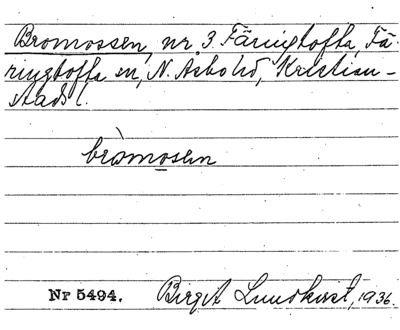 Bromossen, nr. 3. Färingtofta, Fä-
ringtofta sn, N. Åsbo hd, Kristian-
stads l.
bròmosen
Nr 5494. Birgit Lundkvist, 1936.